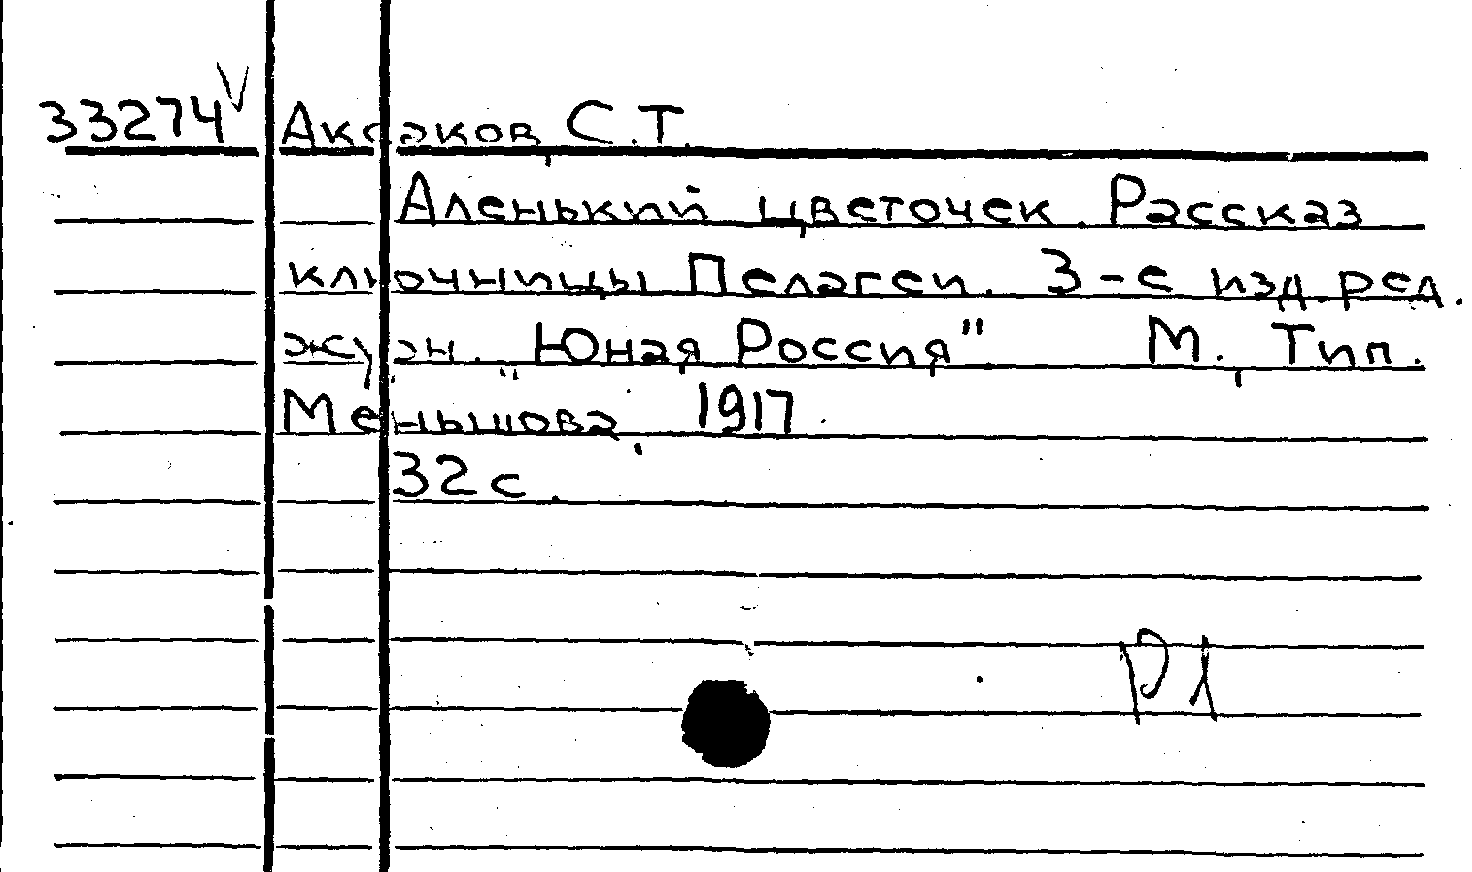 33274 V Аксаков, С.Т.
Аленький цветочек. Рассказ
ключницы Пелагеи. 3-е изд. ред.
журн. „Юная Россия" М., Тип.
Меньшова, 1917.
32 с.